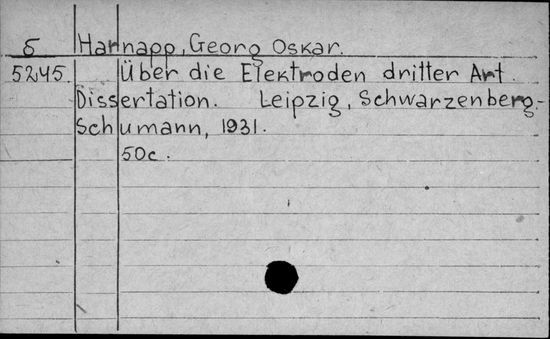 δ Harnapp, Georg Oskar.
5245. Über die Elektroden dritter Art.
Dissertation. Leipzig, Schwarzenberg-
Schumann, 1931.
50c.